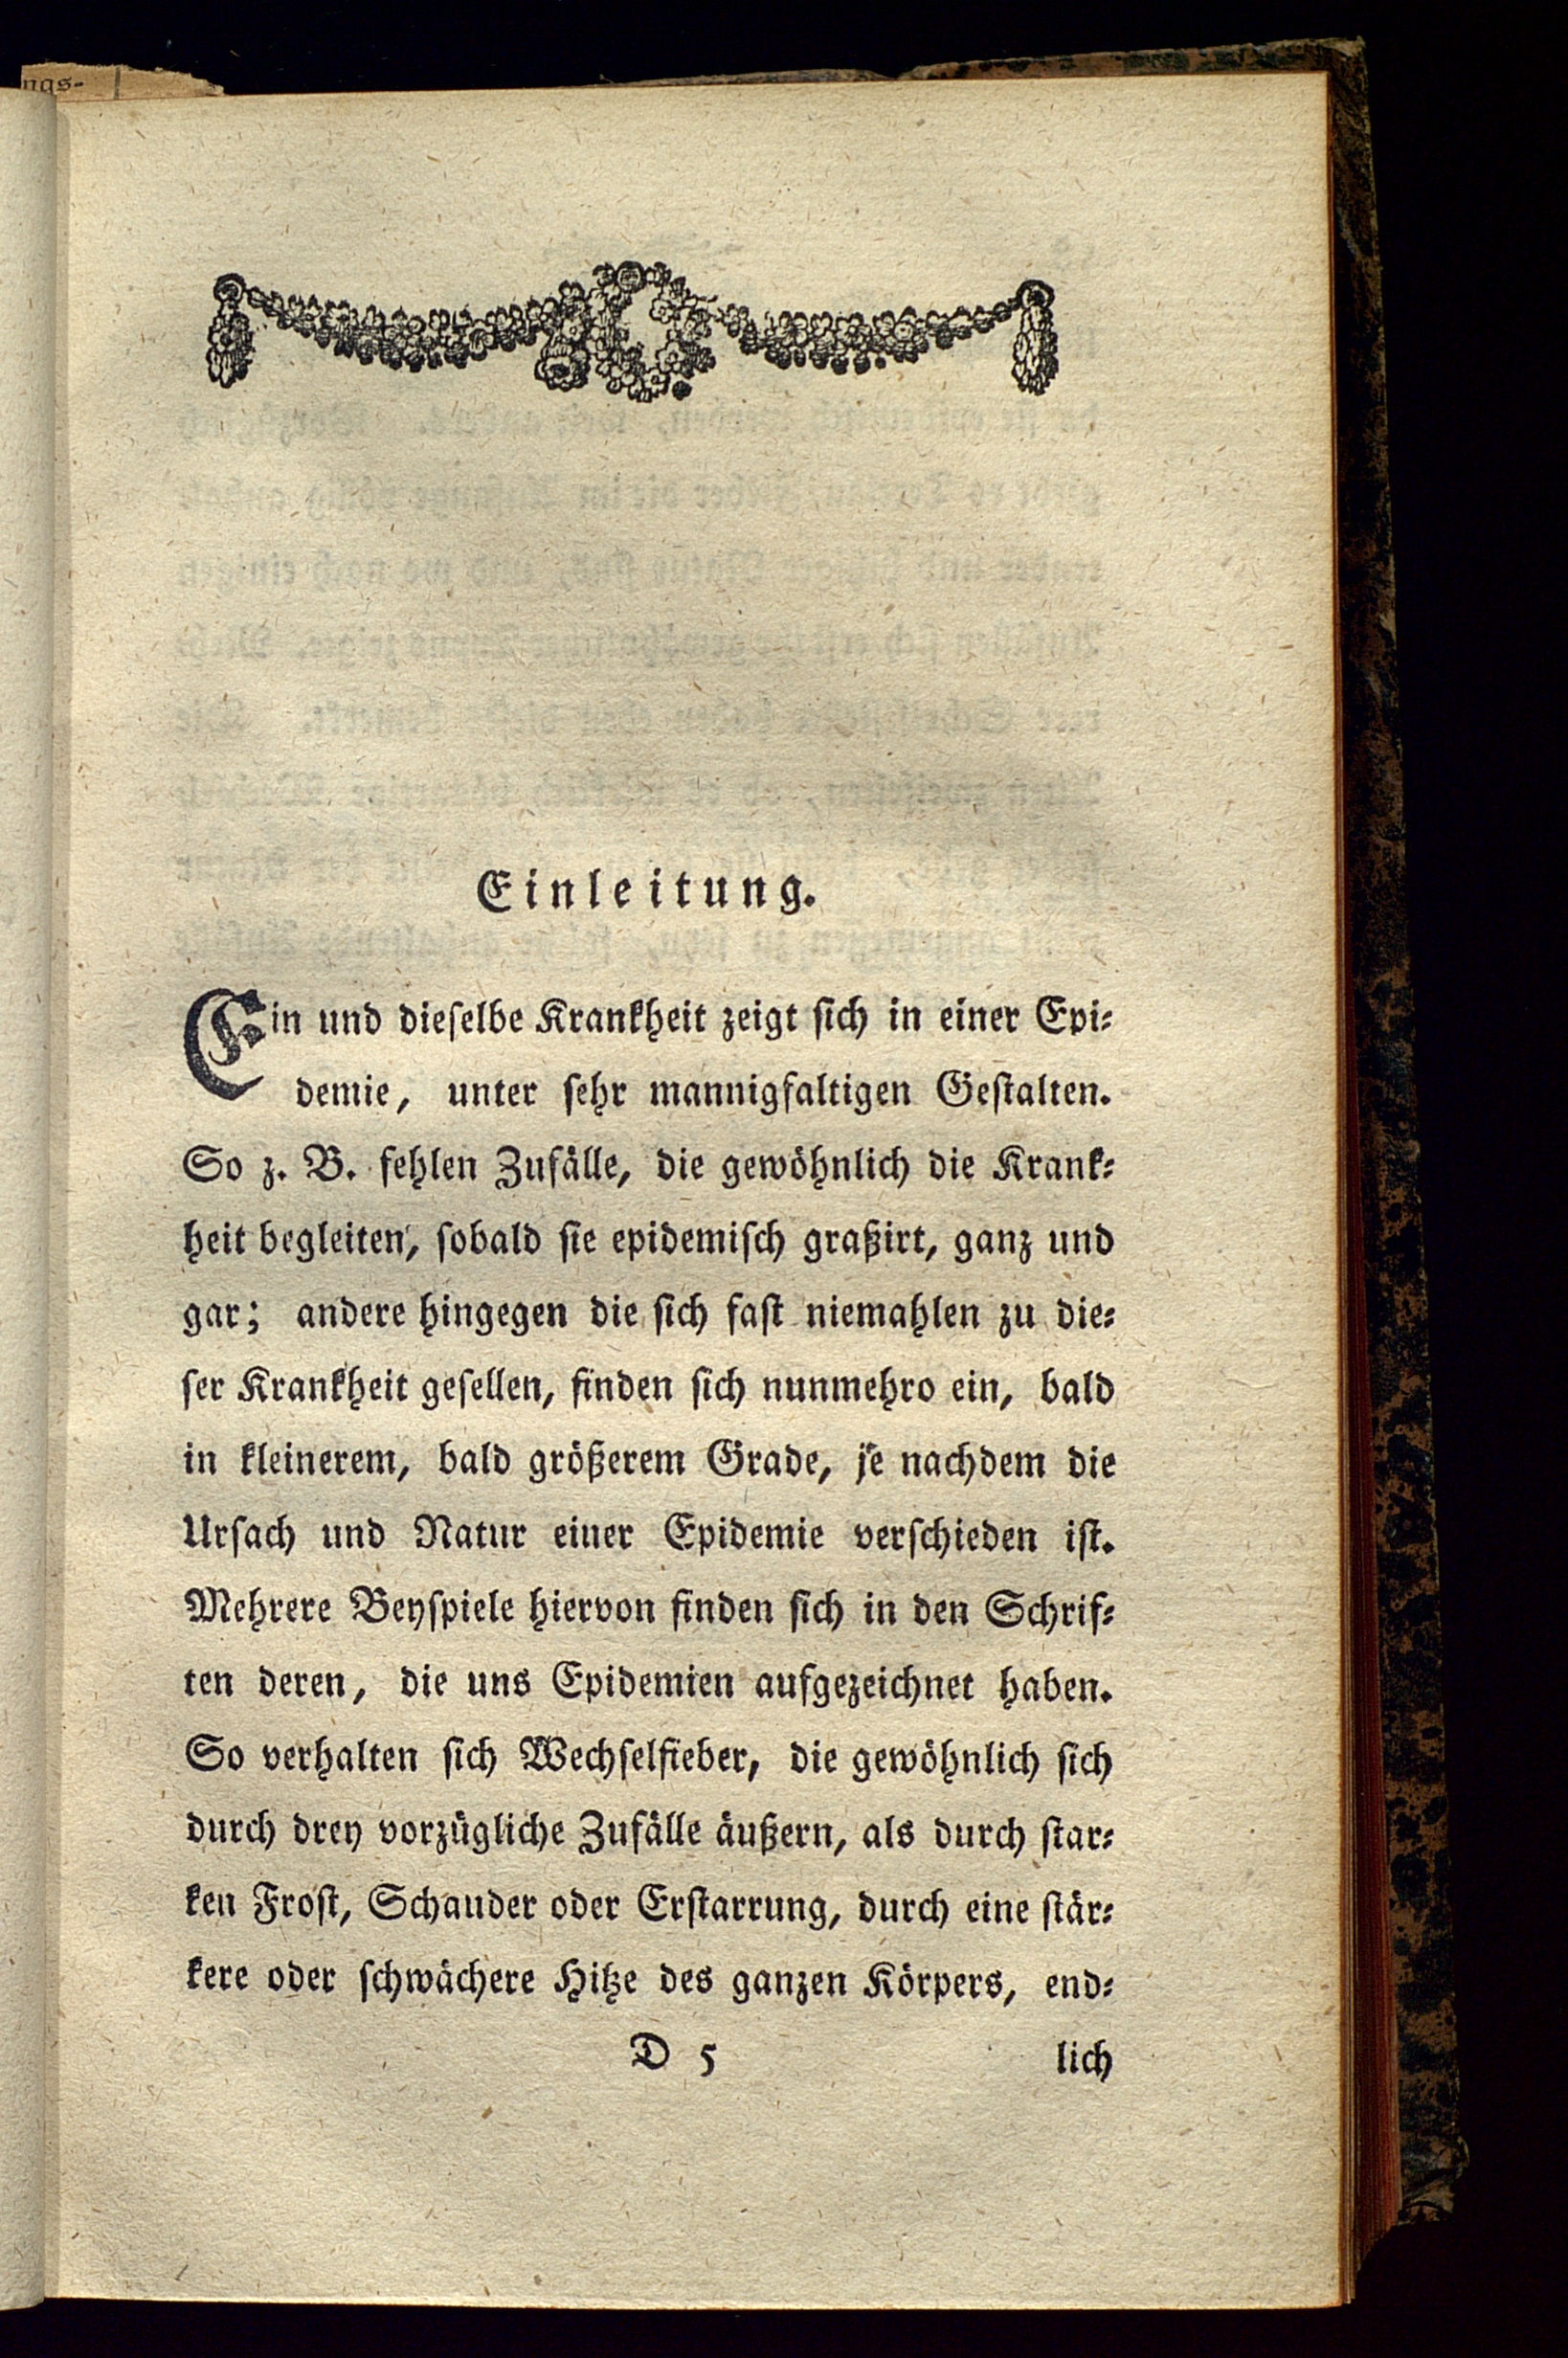 ngs-
Einleitung.
Ein und dieſelbe Krankheit zeigt ſich in einer Epi⸗
demie, unter ſehr mannigfaltigen Geſtalten.
So z. B. fehlen Zufälle, die gewöhnlich die Krank⸗
heit begleiten, ſobald ſie epidemiſch graßirt, ganz und
gar; andere hingegen die ſich faſt niemahlen zu die⸗
ſer Krankheit geſellen, finden ſich nunmehro ein, bald
in kleinerem, bald größerem Grade, je nachdem die
Urſach und Natur einer Epidemie verſchieden iſt.
Mehrere Beyſpiele hiervon finden ſich in den Schrif⸗
ten deren, die uns Epidemien aufgezeichnet haben.
So verhalten ſich Wechſelfieber, die gewöhnlich ſich
durch drey vorzügliche Zufälle äußern, als durch ſtar⸗
ken Froſt, Schauder oder Erſtarrung, durch eine ſtär⸗
kere oder ſchwächere Hitze des ganzen Körpers, end⸗
D 5 lich